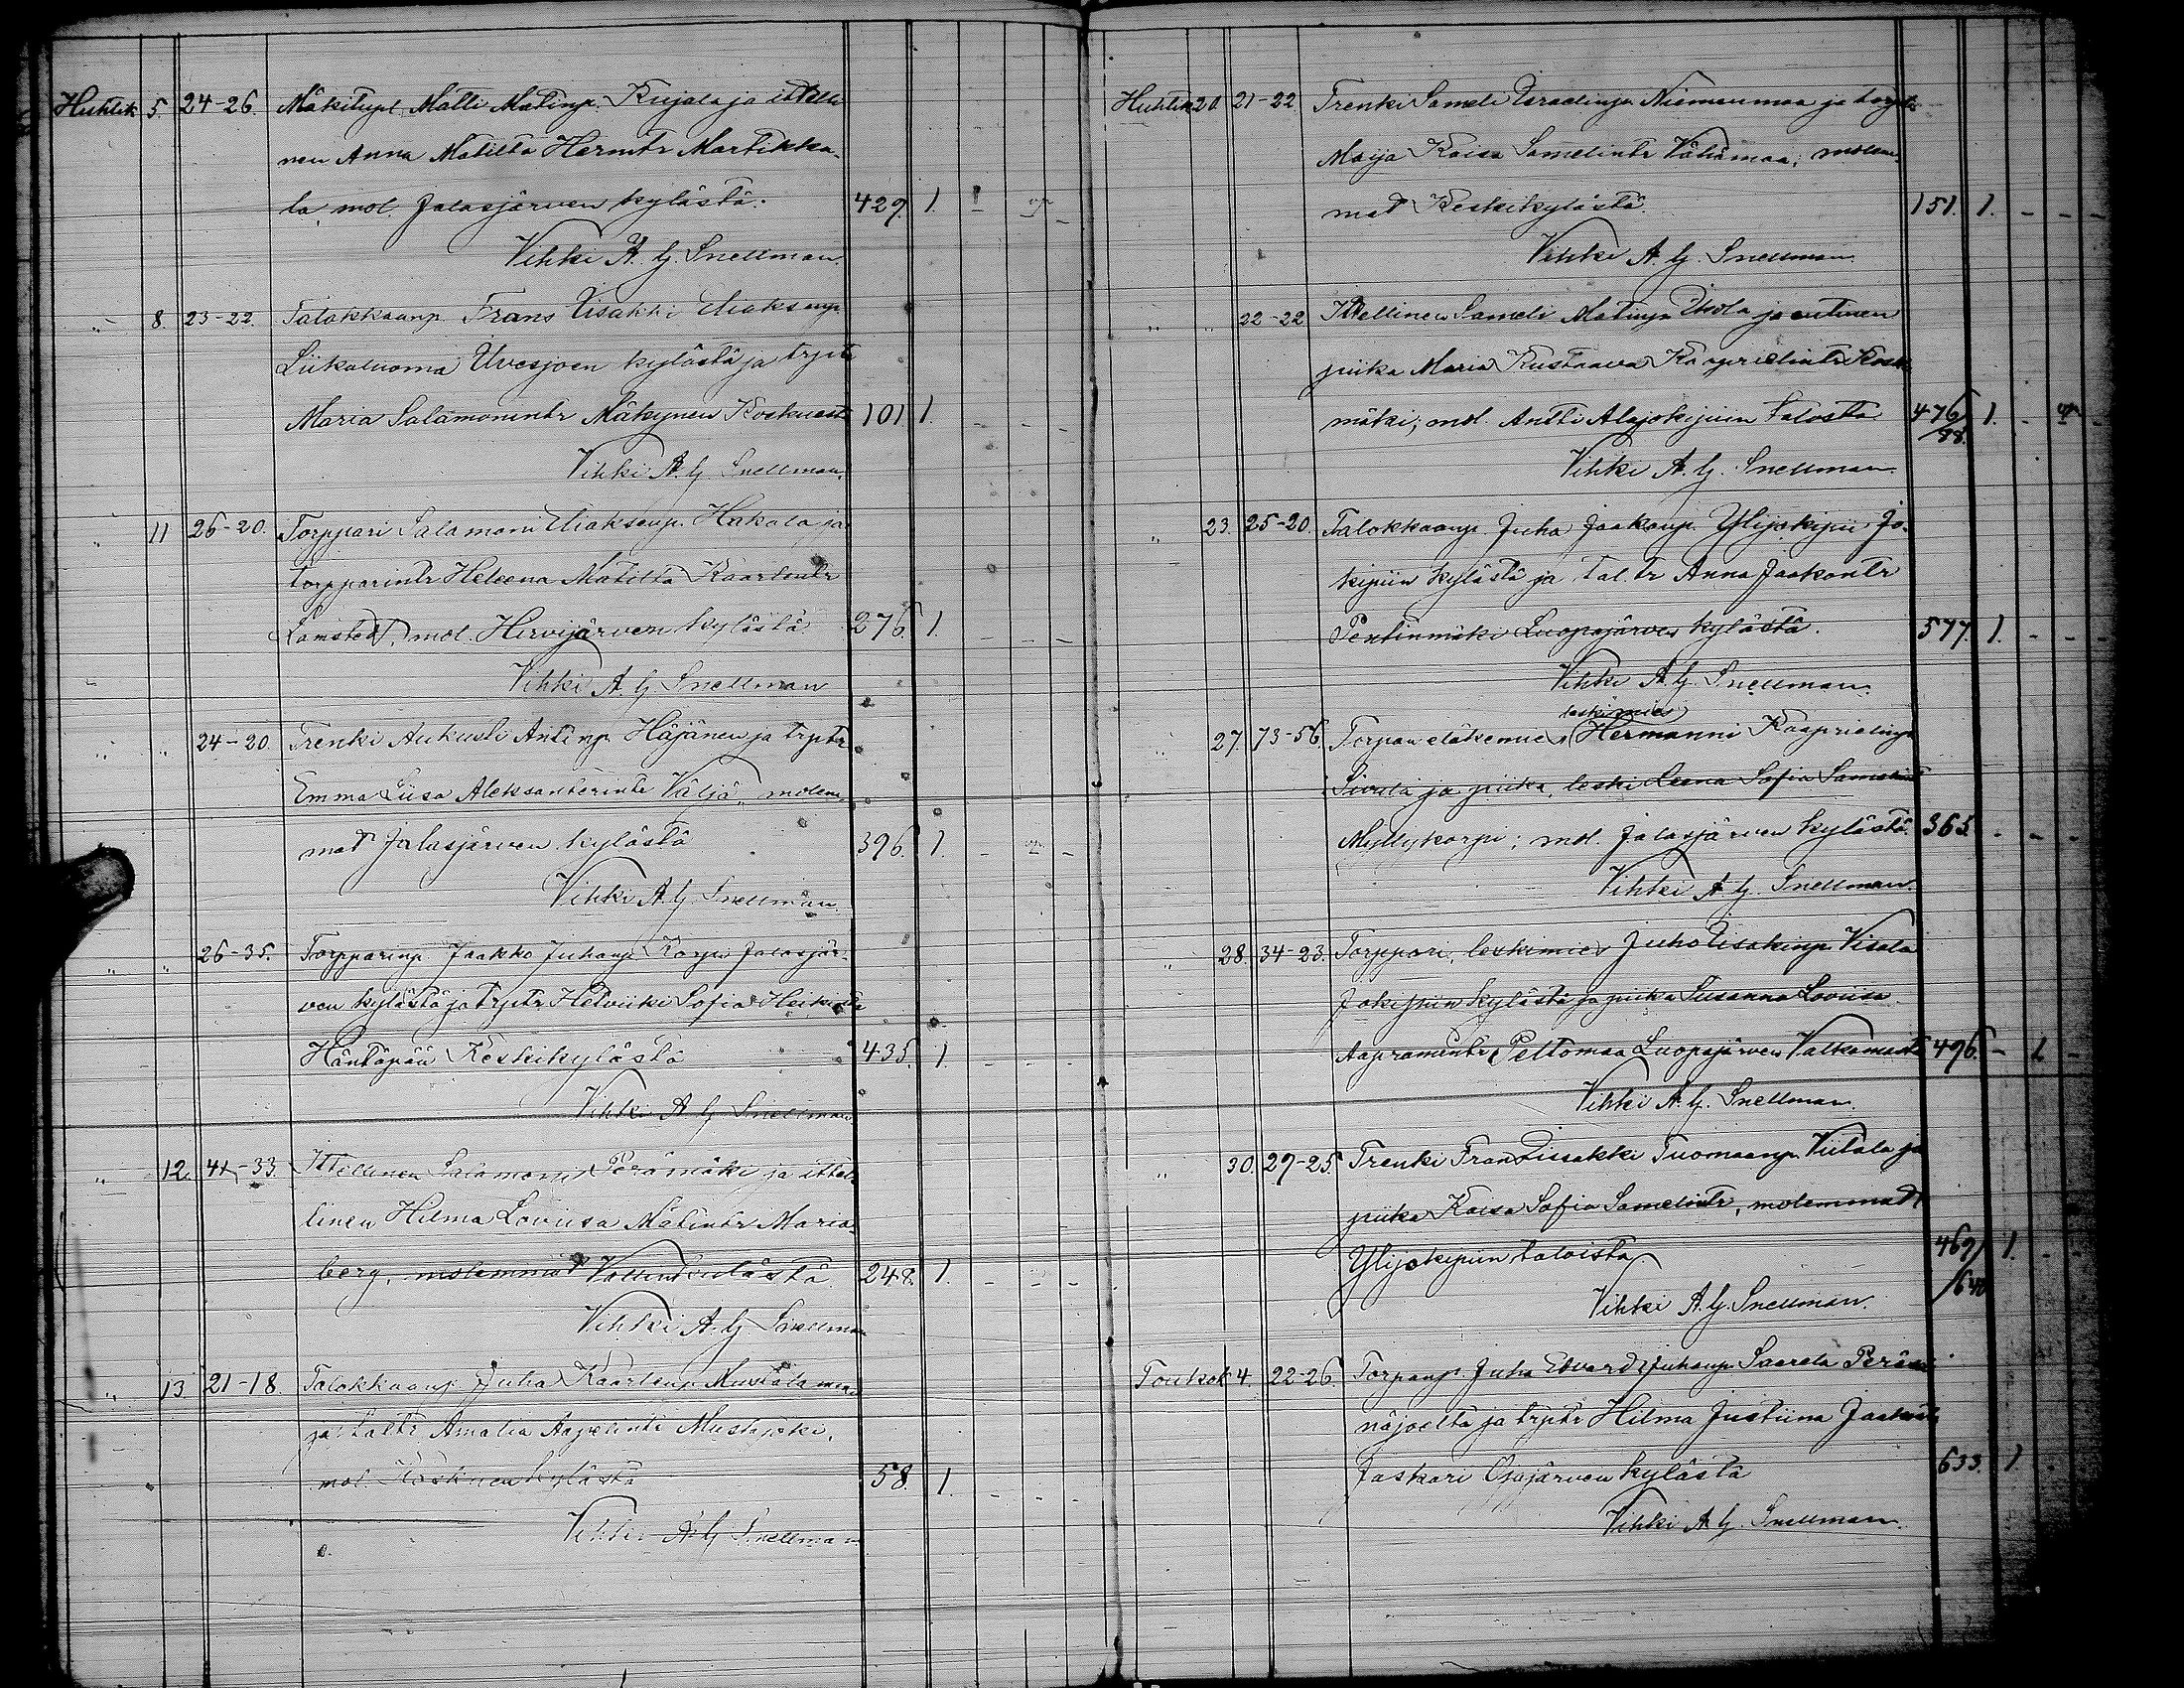 Huhtik 5. 24-26. Mäkitupl. Matti Matinp. Kujala ja ittelli
nen Anna Matilta Hermtr Martikka-
la, mol. Jalasjärven kylästä. 429. 1.
Vihki A. G. Snellman.
" 8. 23-22. Talokkaanp. Frans Iisakki Eliaksenp.
Liikaluoma Ilvesjoen kylästä ja trptr
Maria Salamonintr Mäkynen Koskuesta 101 1. - - -
Vihki A. G. Snellman.
" 11 26-20. Torppari Salamoni Eliaksenp. Hakala ja
torpparintr Heleena Matilta Kaarlentr
mol. Hirvijärven kylästä 276. 1. - - -
Vihki A. G. Snellman
" " 24-20. Trenki Aukusti Antinp. Häjänen ja trptr
Emma Liisa Aleksanterintr Väljä, molem-
mat Jalasjärven kylästä 396. 1. - -
Vihki A. G. Snellman.
" " 26-35. Torpparinp. Jaakko Juhanp. Korpi Jalasjär-
ven kylästä ja trptr Hetviiki Sofia Heikintr
Häntäpää Keskikylästä 435. 1. - - -
Vihki A. G. Snellman
" 12. 41-33. Ittellinen Salamon Perämäki ja ittel-
linen Hilma Loviisa Matintr Maria-
berg, molemmat 248. 1. - - -
Vihki A. G. Snellman
" 13 21-18. Talokkaanp. Juha Kaarlenp. Mustalamaa
ja taltr Amalia Aapelintr Mustajoki,
mol. Koskuen kylästä 58. 1. - - -
Vihki A. G. Snellman
Huhtik 20. 21-22 Trenki Sameli Israelinp. Niemenmaa ja torptr
Maija Kaisa Samelintr Vähämaa; molem-
mat Keskikylästä. 151. 1. - - -
Vihki A. G. Snellman.
" " 22-22 Ittellinen Sameli Matinp. ja entinen
piika Maria Kustaava Kaaprielintr Kosken-
mäki; mol. Antti Alajokipiin talosta 476/88. 1. -
Vihki A. G. Snellman.
" 23. 25-20. Talokkaanp. Juha Jaakonp. Ylijokipii Jo-
kipiin kylästä ja tal.tr Anna Jaakontr
Pentinmäki Luopajärven kylästä. 577. 1. - - -
Vihki A. G. Snellman.
leskimies
" 27. 73-56 Torpan eläkemies Hermanni Kaaprielinp.
Sivula ja piika, leski Leena Sofia Samelintr
Myllykorpi; mol. Jalasjärven kylästä. 365. - - -
Vihki A. G. Snellman.
" 28. 34-23. Torppari, leskimies Juho Iisakinp. Visala
Jokipiin kylästä ja piika Susanna Loviisa
Aapramintr Peltomaa Luopajärven Valkamasta 496. - 1. -
Vihki A. G. Snellman.
" 30. 29-25 Trenki Frans Iisakki Tuomaanp. Viitala ja
piika Kaisa Sofia Samelintr, molemmat
Ylijokipiin taloista. 469/640 1. - -
Vihki A. G. Snellman.
Toukok 4. 22-26. Torpanp. Juha Edvard Juhanp. Saarela Peräsei-
näjoelta ja trptr Hilma Justiina Jaakontr
Jaskari Opajärven kylästä 633. 1 -
Vihki A. G. Snellman.